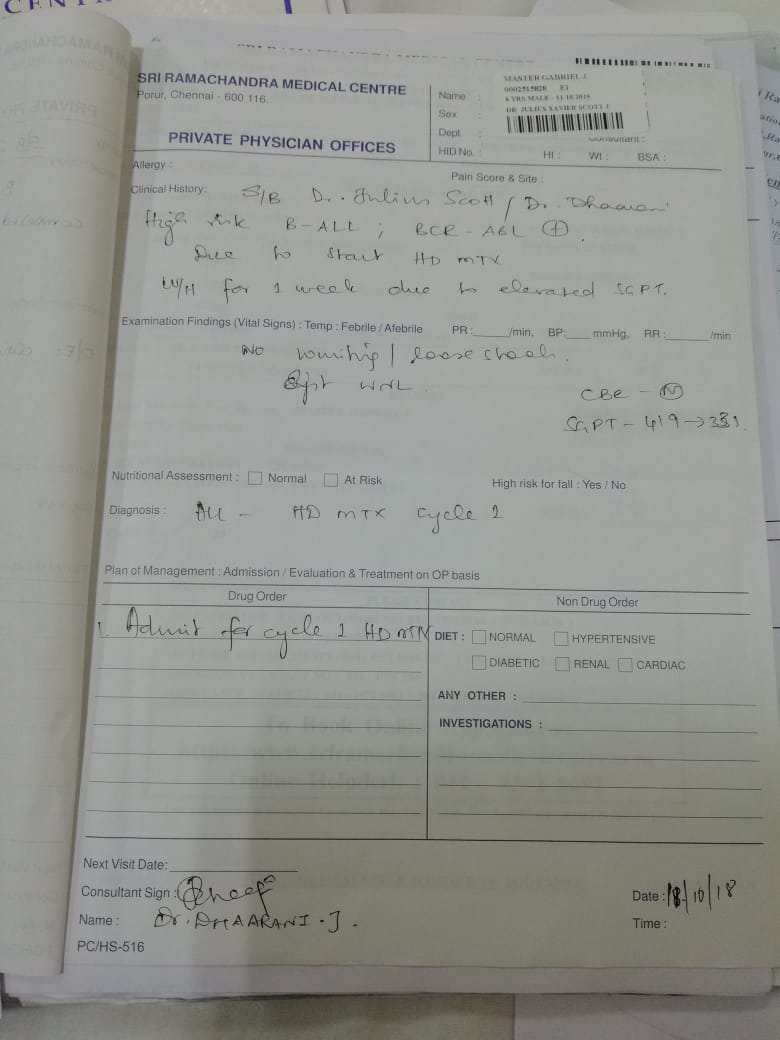 SRI RAMACHANDRA MEDICAL CENTRE
Porur, Chennai - 600 116.
PRIVATE PHYSICIAN OFFICES
Name :
Sex :
Dept :
HID No. :
MASTER GABRIEL J.
0002515028 E1
6 YRS MALE
DR JULIUS XAVIER SCOTT J
Consultant :
Ht : Wt : BSA :
Allergy : Pain Score & Site :
Clinical History: S/B Dr. Julius Scott / Dr. Dhaarani
High risk B-ALL ; BCR-ABL +.
Due to start HD MTX
W/H for 1 week due to elevated SGPT.
Examination Findings (Vital Signs) : Temp : Febrile / Afebrile PR: /min, BP: mmHg, RR: /min
No vomiting / loose stools.
WNL
CBC - N
SGPT - 419 → 331
Nutritional Assessment : Normal At Risk High risk for fall : Yes / No
Diagnosis : ALL - HD MTX cycle 1
Plan of Management : Admission / Evaluation & Treatment on OP basis
Drug Order
Non Drug Order
1. Admit for cycle 1 HD MTX
DIET : NORMAL HYPERTENSIVE
DIABETIC RENAL CARDIAC
ANY OTHER :
INVESTIGATIONS :
Next Visit Date:
Consultant Sign :
Name : Dr. DHAARANI. J.
Date : 18/10/18
Time :
PC/HS-516